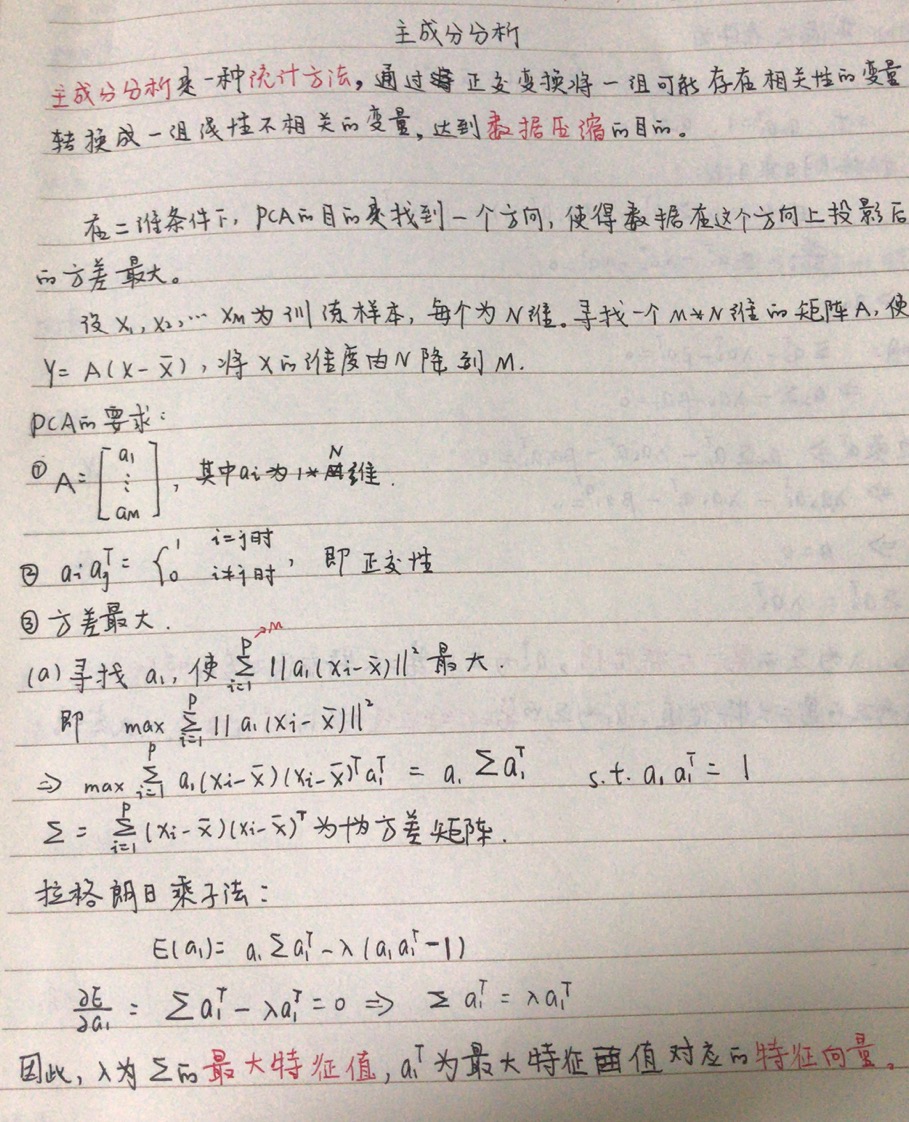 主成分分析
主成分分析是一种统计方法，通过正交变换将一组可能存在相关性的变量
转换成一组线性不相关的变量，达到数据压缩的目的。
在二维条件下，PCA的目的是找到一个方向，使得数据在这个方向上投影后
的方差最大。
设 X₁, X₂, … Xm 为训练样本，每个为N维。寻找一个 M*N维的矩阵A，使
Y = A(X - X̄)，将X的维度由N降到M.
PCA的要求：
① A = [a₁ ⋮ am]，其中ai为 1*N维.
② aiajᵀ = { 1 i=j时, 0 i≠j时，即正交性
③ 方差最大.
(a) 寻找 a₁，使 Σ_{i=1}^{P→M} ||a₁(xi - x̄)||² 最大.
即 max Σ_{i=1}^{P} ||a₁(xi - x̄)||²
⇒ max Σ_{i=1}^{P} a₁(xi - x̄)(xi - x̄)ᵀa₁ᵀ = a₁Σa₁ᵀ s.t. a₁a₁ᵀ = 1
Σ = Σ_{i=1}^{P} (xi - x̄)(xi - x̄)ᵀ 为协方差矩阵.
拉格朗日乘子法：
E(a₁) = a₁Σa₁ᵀ - λ(a₁a₁ᵀ - 1)
∂E/∂a₁ = Σa₁ᵀ - λa₁ᵀ = 0 ⇒ Σa₁ᵀ = λa₁ᵀ
因此，λ为Σ的最大特征值，a₁ᵀ为最大特征值对应的特征向量。